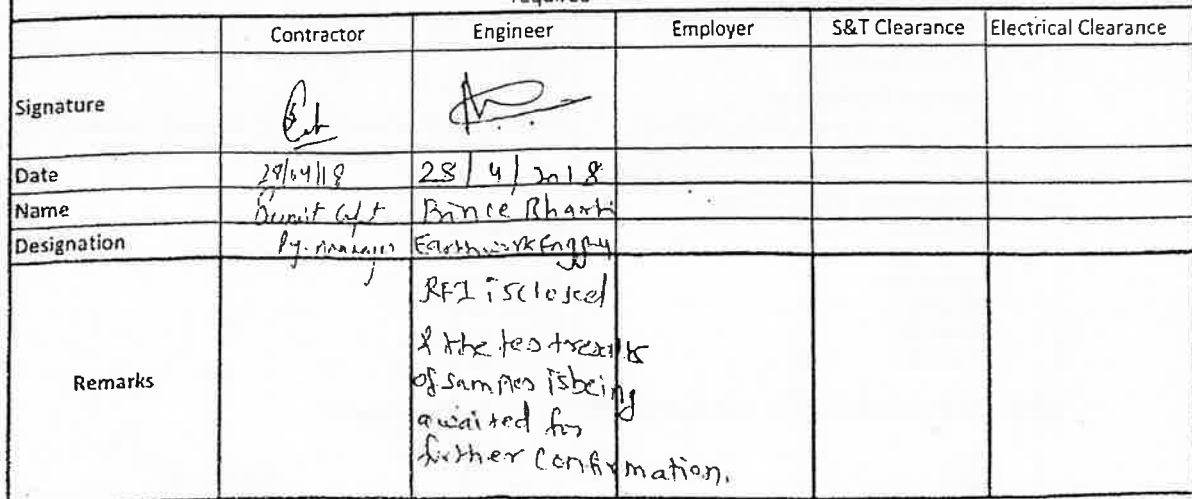 required
Contractor Engineer Employer S&T Clearance Electrical Clearance
Signature
Date 28/04/18 28/4/2018
Name Prince Bharti
Designation Dy. manager Earthwork Engg
RFI is closed
& the test results
Remarks
of samples is being
awaited for
further Confirmation.